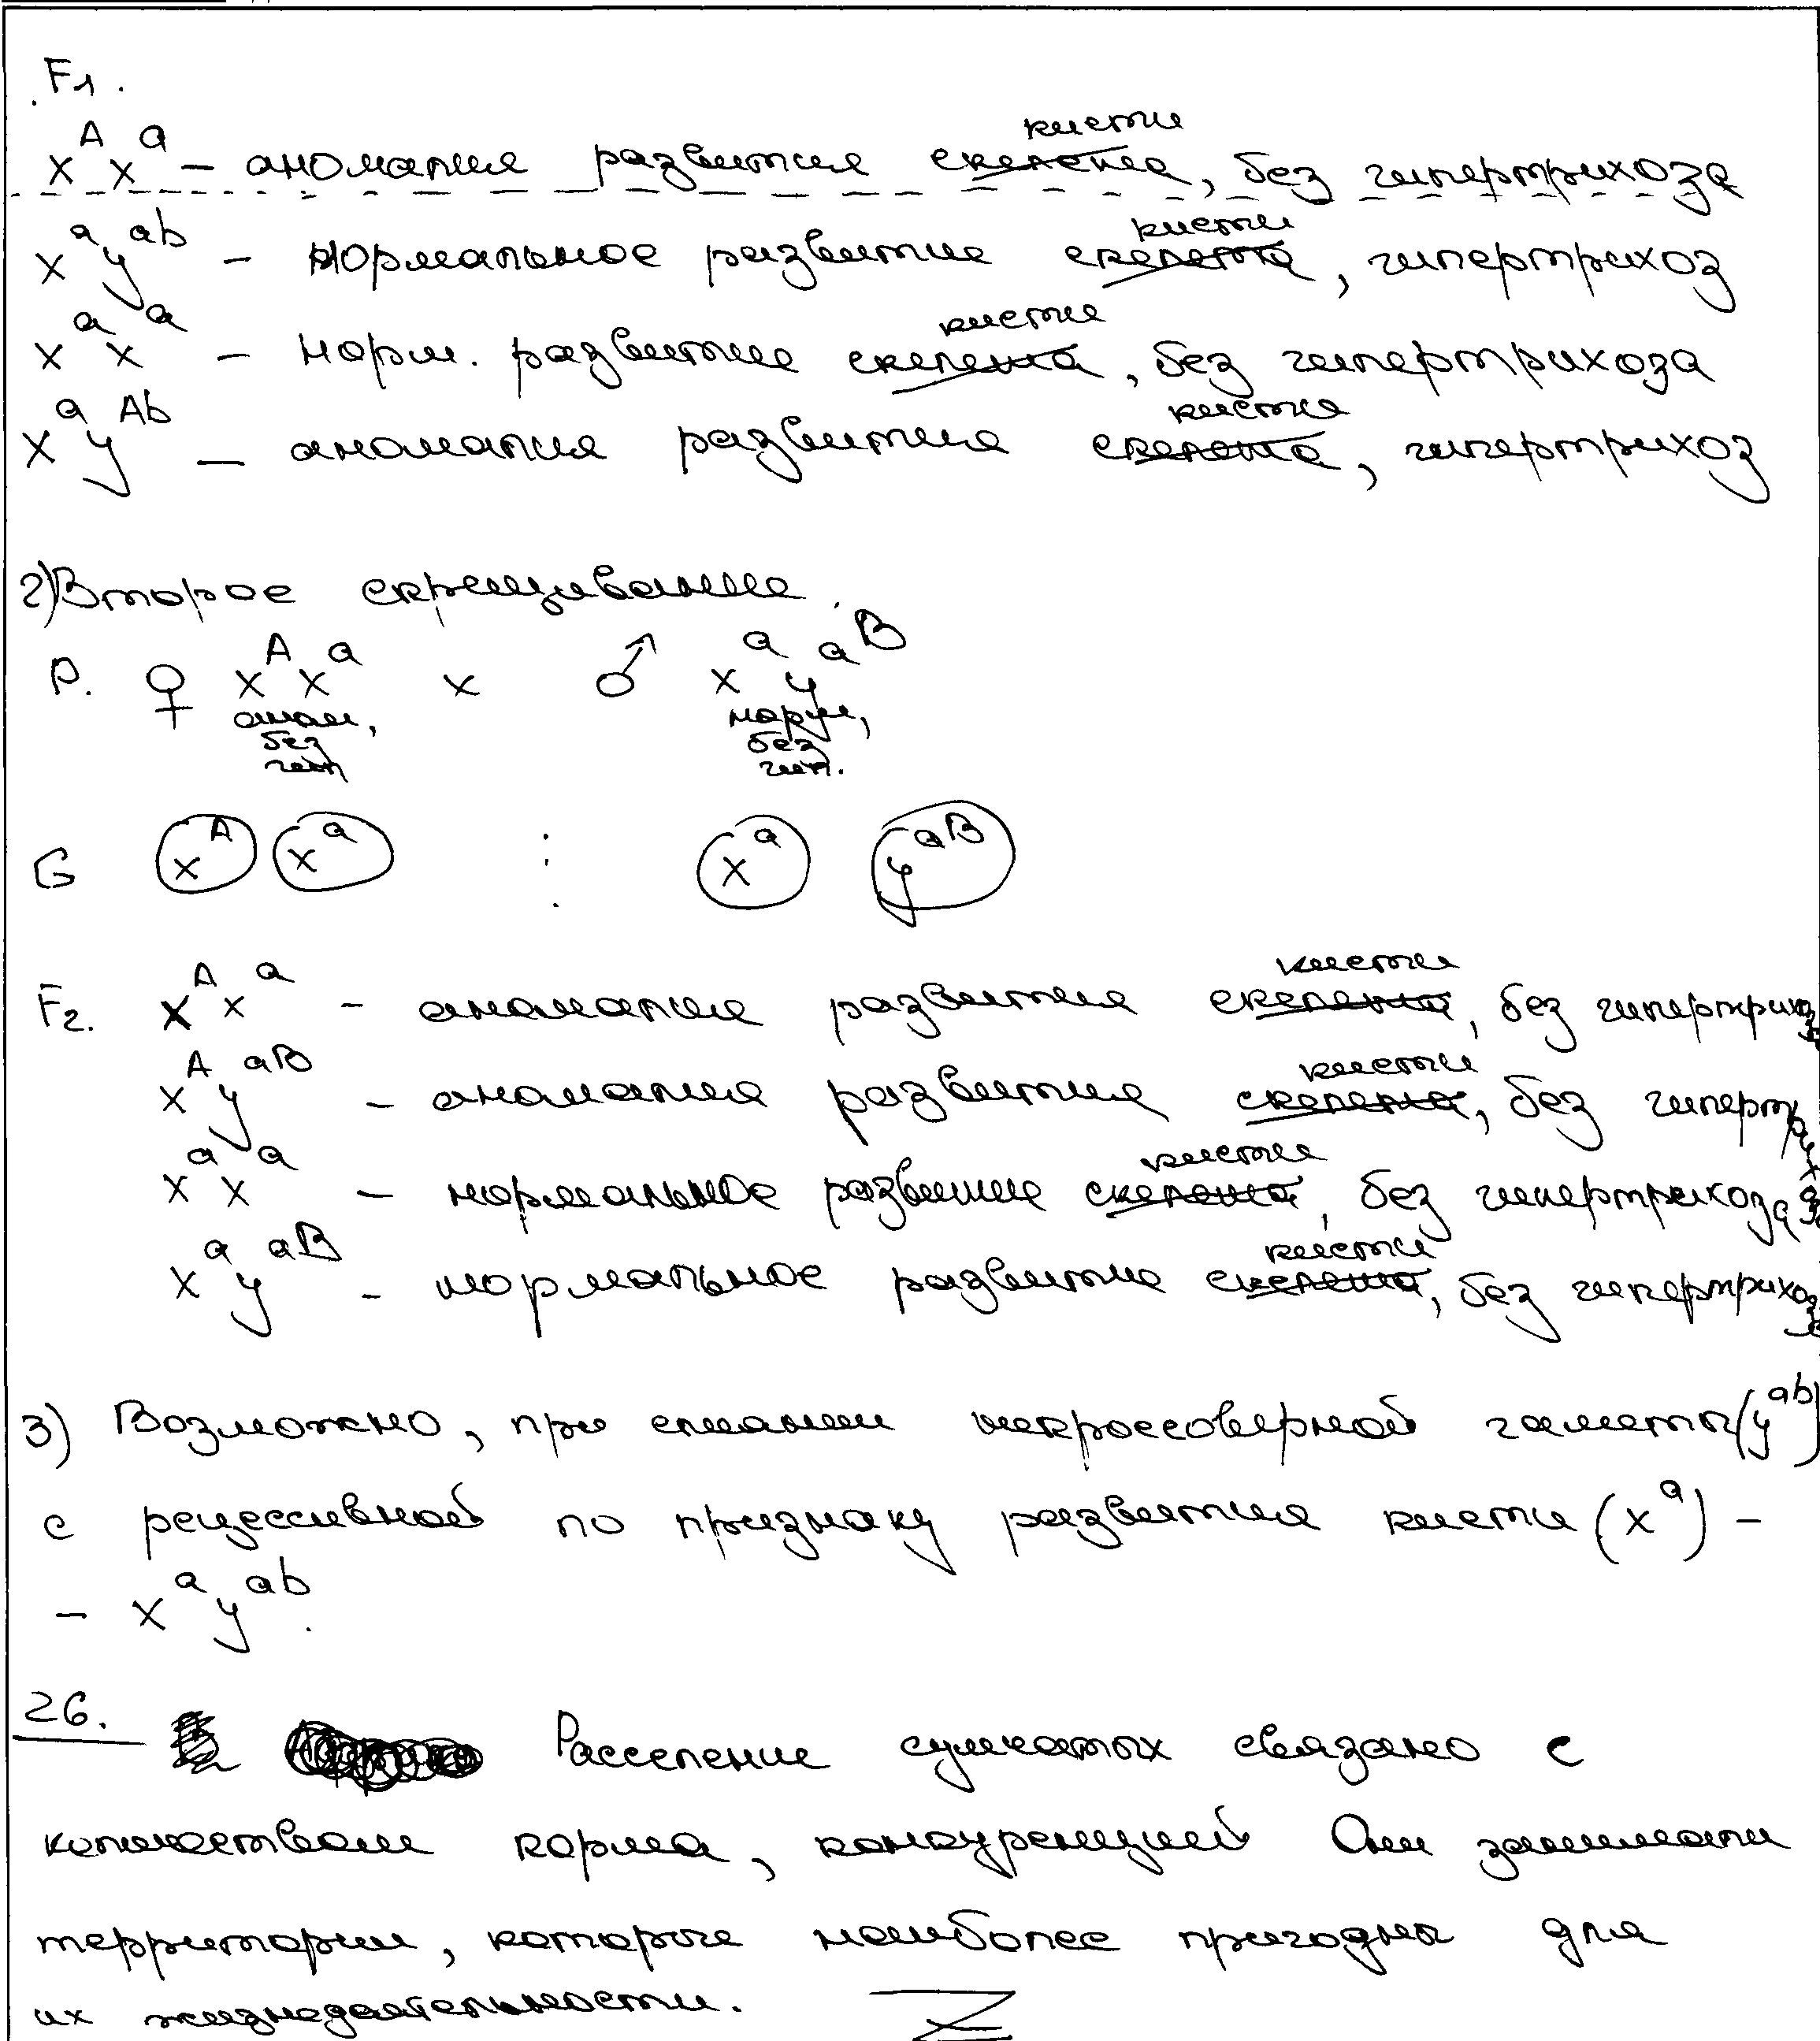 F1.
X^A X^a – аномалия развития ~~скелета~~ кисти, без гипертрихоза
X^a y^ab – нормальное развитие ~~скелета~~ кисти, гипертрихоз
X^a X^a – норм. развитие ~~скелета~~ кисти, без гипертрихоза
X^a y^Ab – аномалия развития ~~скелета~~ кисти, гипертрихоз
2) Второе скрещивание.
P. ♀ X^A X^a x ♂ X^a y^aB
аном, норм,
без без
гип гип.
G X^A X^a : X^a y^aB
F2. X^A X^a – аномалия развития ~~скелета~~ кисти, без гипертрихоза
X^A y^aB – аномалия развития ~~скелета~~ кисти, без гипертрихоза
X^a X^a – нормальное развитие ~~скелета~~ кисти, без гипертрихоза
X^a y^aB – нормальное развитие ~~скелета~~ кисти, без гипертрихоза
3) Возможно, при слиянии некроссоверной гаметы (y^ab)
с рецессивной по признаку развития кисти (X^a) –
– X^a y^ab.
26. Расселение сумчатых связано с
количеством корма, конкуренцией Они занимали
территории, которые наиболее пригодны для
их жизнедеятельности.